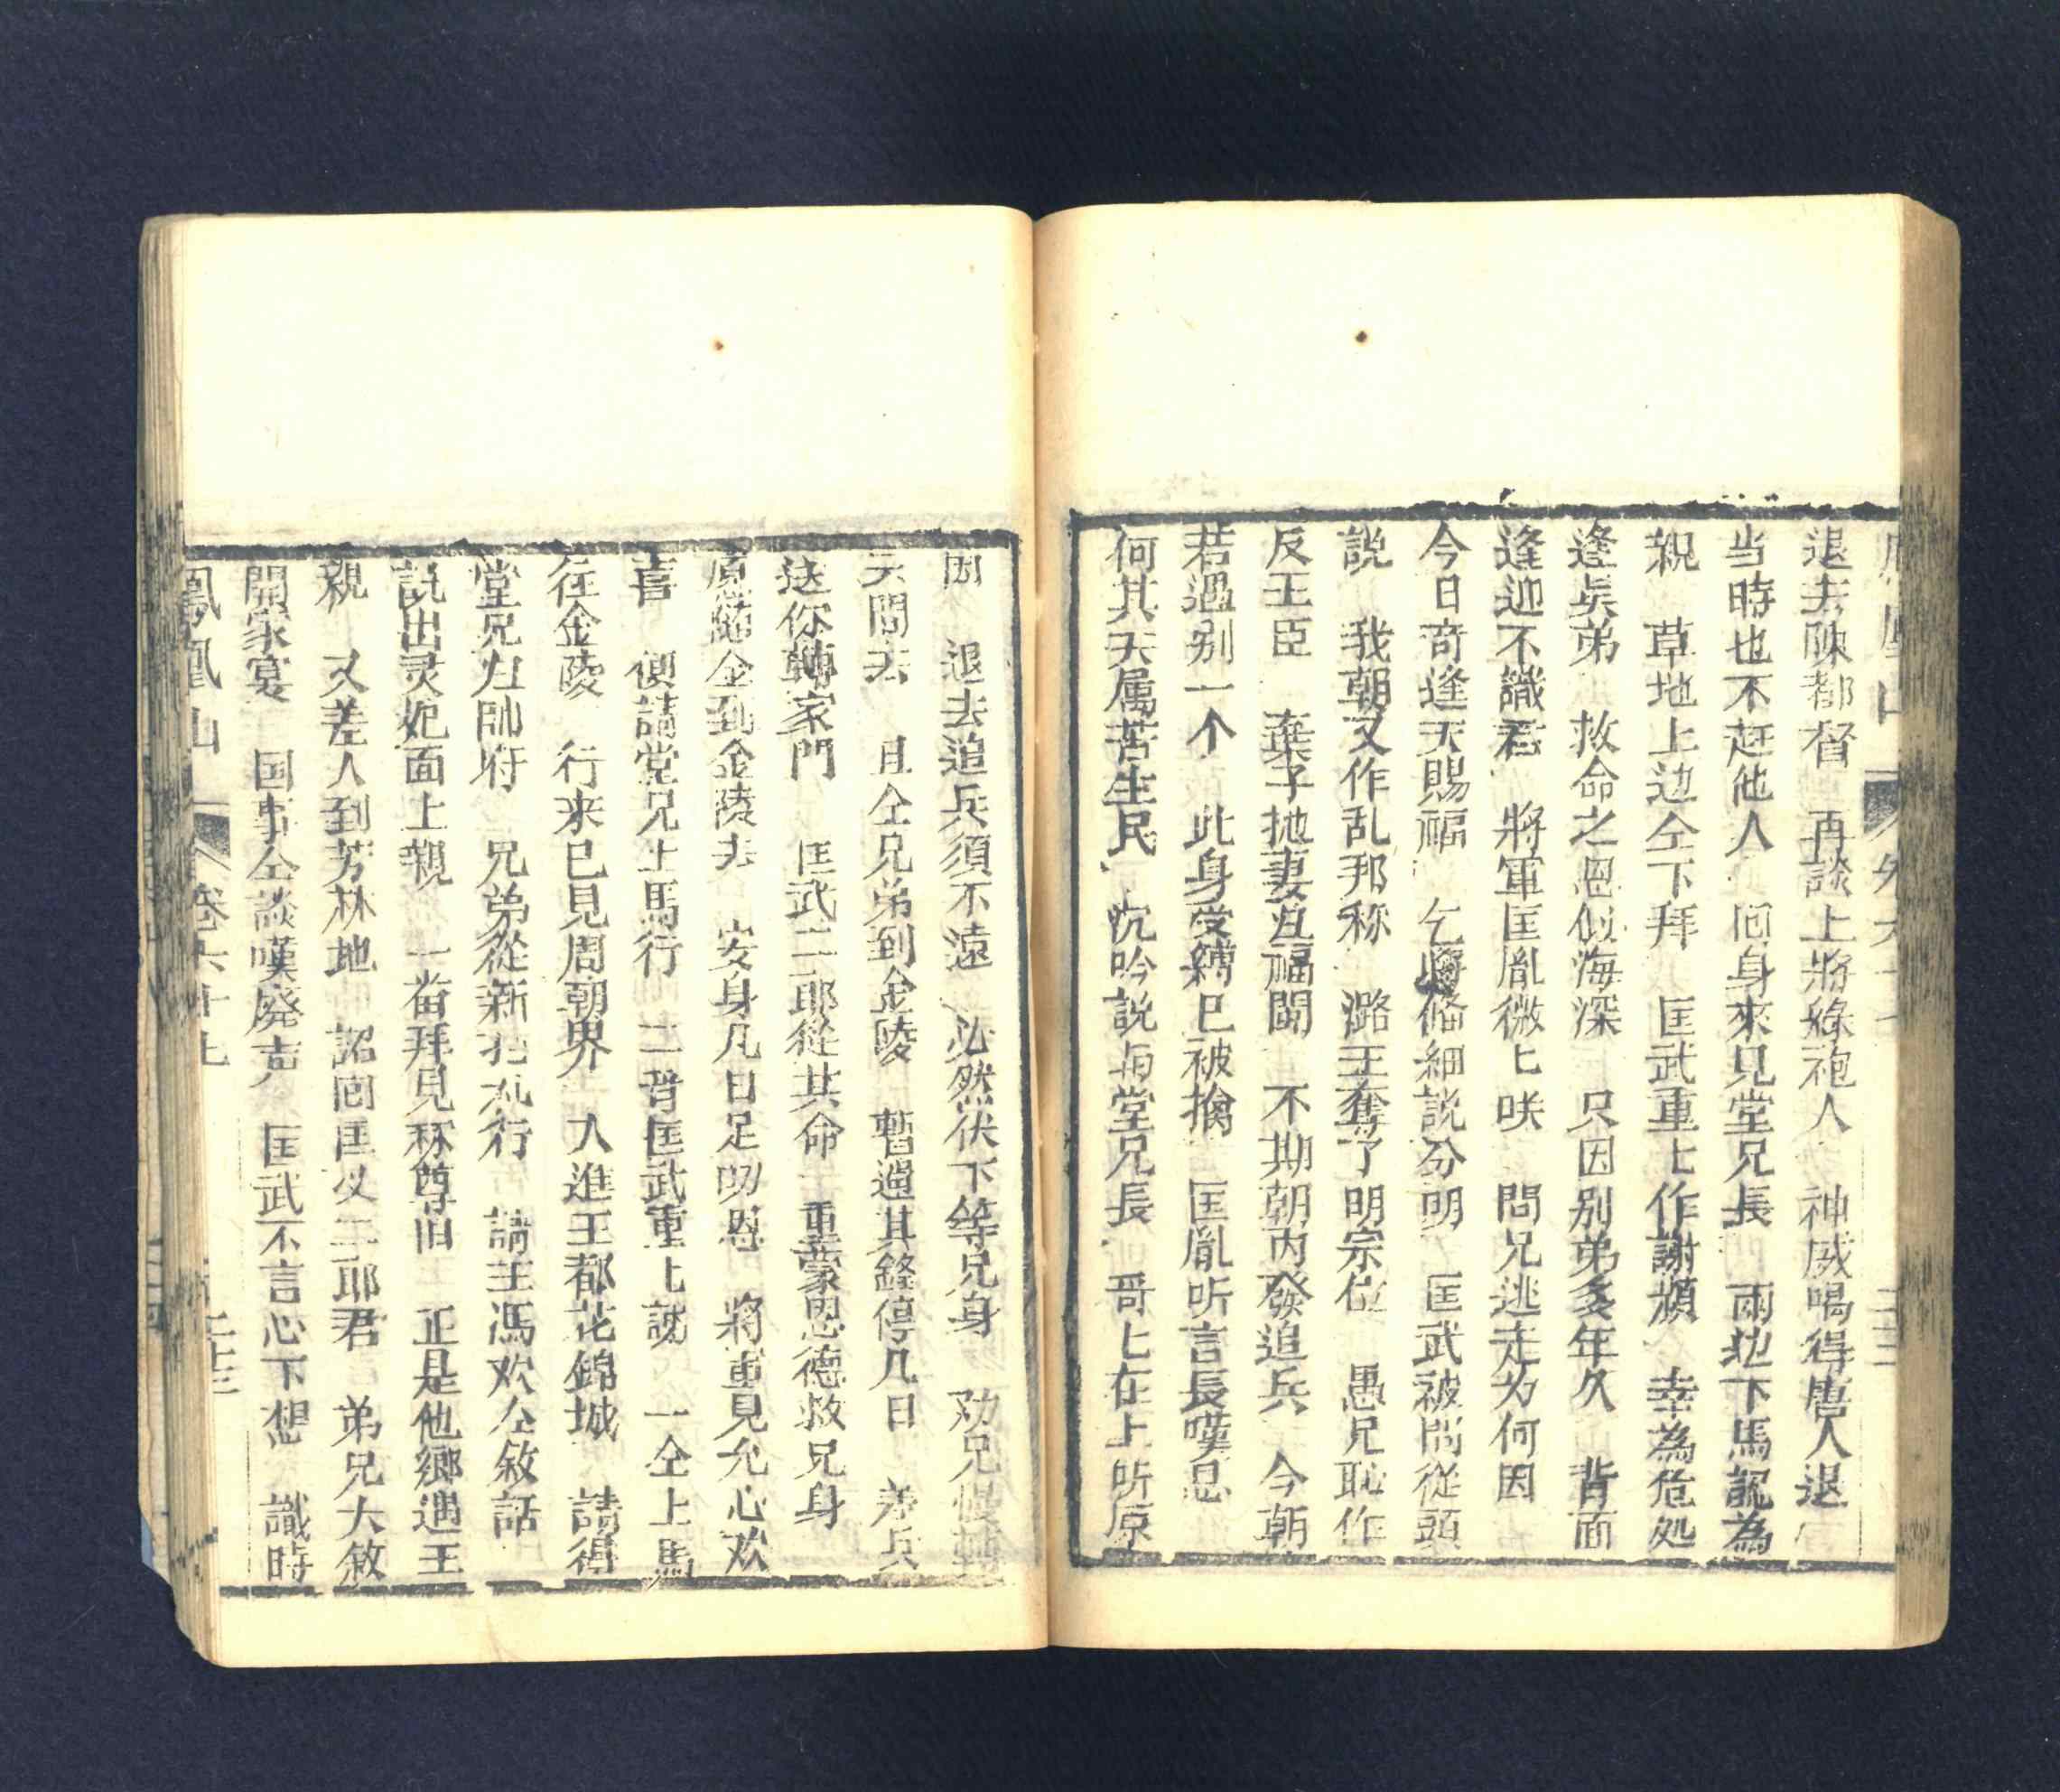 退去陳都督　再談上將綠袍人　神威喝得唐人退
当時也不赶他人　囘身來見堂兄長　兩地下馬認為
親　草地上边仝下拜　匡武重匕作謝頻　幸為危処
逢吳弟　救命之恩似海深　只因别弟多年久　背面
逢迎不識君　將軍匡胤微匕咲　問兄逃走为何因
今日奇逢天賜福　乞將俻細説分明　匡武被問從頭
説　我朝又作乱邦称　潞王奪了明宗位　愚兄恥作
反王臣　棄子抛妻　福闘　不期朝内發追兵　今朝
若遇别一个　此身受縛已被擒　匡胤听言長嘆息
何其天属苦生民　沉吟説与堂兄長　哥匕在上听原
因　退去追兵須不遠　必然伏下等兄身　劝兄慢轉
天関去　且仝兄弟到金陵　暫過其鋒停几日　差兵
送你轉家門　匡武二郎從其命　重蒙恩德救兄身
原隨仝到金陵去　安身几日足叨恩　將軍見允心欢
喜　便請堂兄上馬行　二背匡武重匕説　一仝上馬
往金陵　行来已見周朝界　人進王都花錦城　請得
堂兄归帥府　兄弟從新礼行　請王馮欢仝敘話
説出灵妃面上親　一畨拜見称尊旧　正是他鄉遇王
親　又差人到芳林地　認囘匡义二郎君　弟兄大敘
開家宴　国事仝談嘆廢声　匡武不言心下想　識時
鳳凰山　卷六十七　二十三